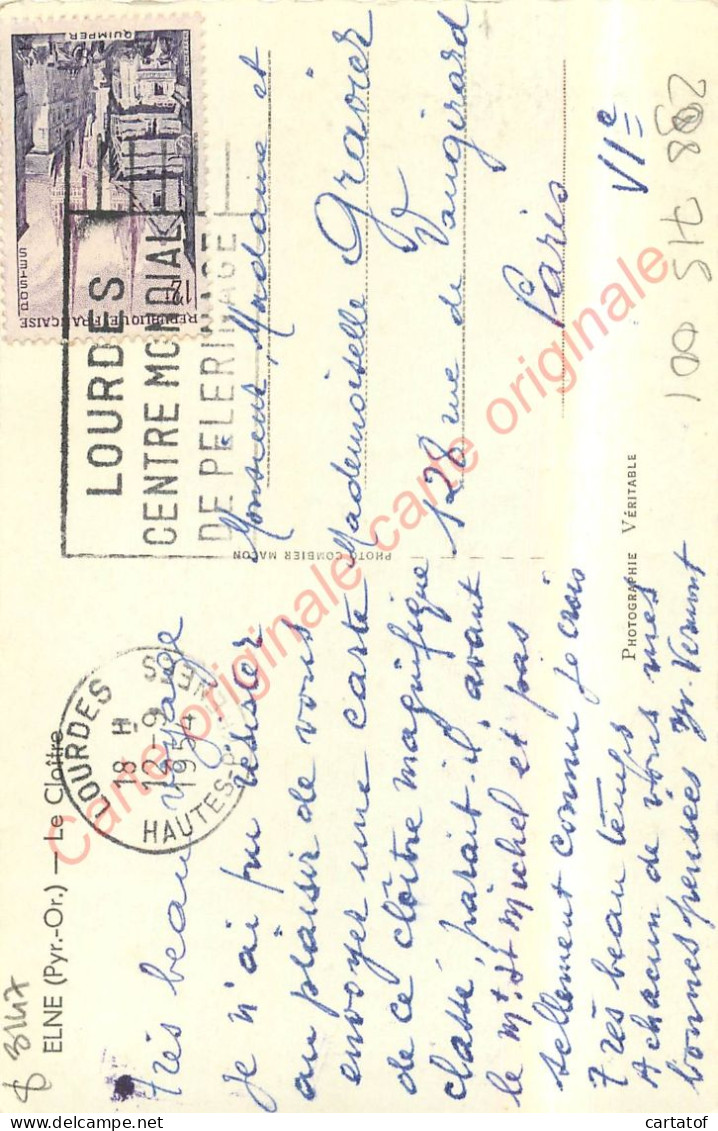 ELNE (Pyr.-Or.) — Le Cloître
Très beau voyage
je n'ai pu résister
au plaisir de vous
envoyer une carte
de ce cloître magnifique
classé, paraît-il, avant
le Mt. St Michel et pas
tellement connu je crois
Très beau temps
A chacun de vous mes
bonnes pensées
PHOTO COMBIER MACON
PHOTOGRAPHIE VÉRITABLE
Monsieur, Madame et
Mademoiselle Gravier
128 rue de Vaugirard
Paris VIe
LOURDES
CENTRE MONDIAL
DE PELERINAGE
LOURDES
18 H
12-9
1954
HAUTES-PYRENEES
QUIMPER
POSTES
12F
REPUBLIQUE FRANÇAISE
3147
100 517 882
Carte originale carte originale carte originale
cartatof